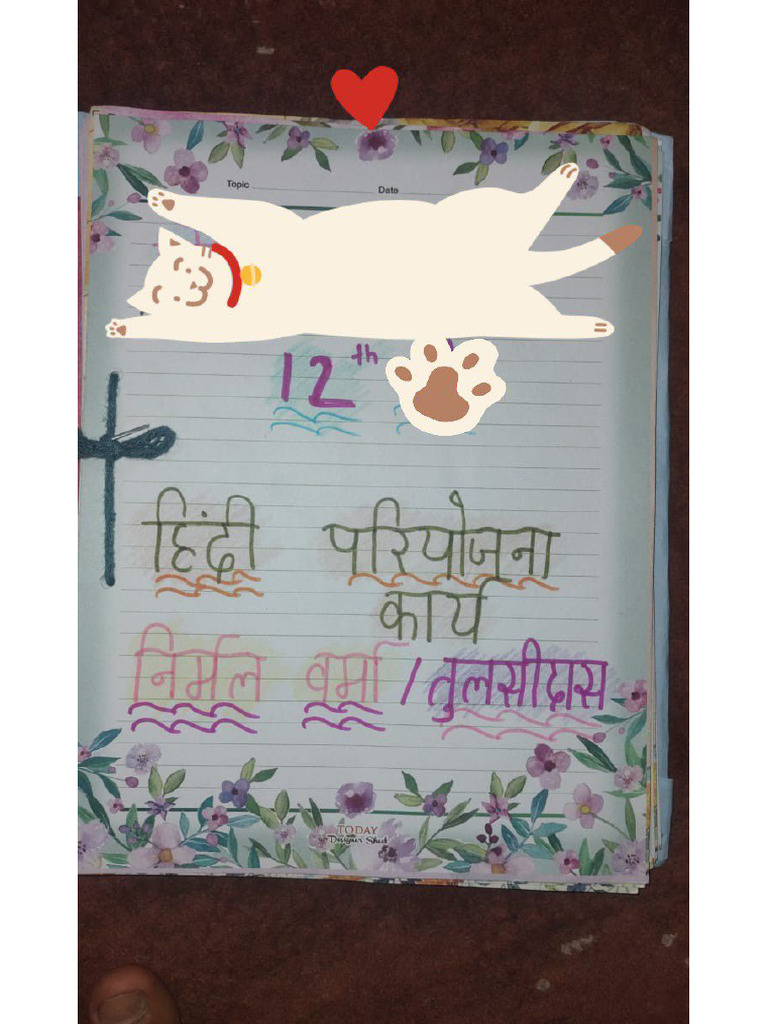 Topic Date
12th
हिंदी परियोजना
कार्य
निर्मल वर्मा / तुलसीदास
TODAY
Designer Sheet